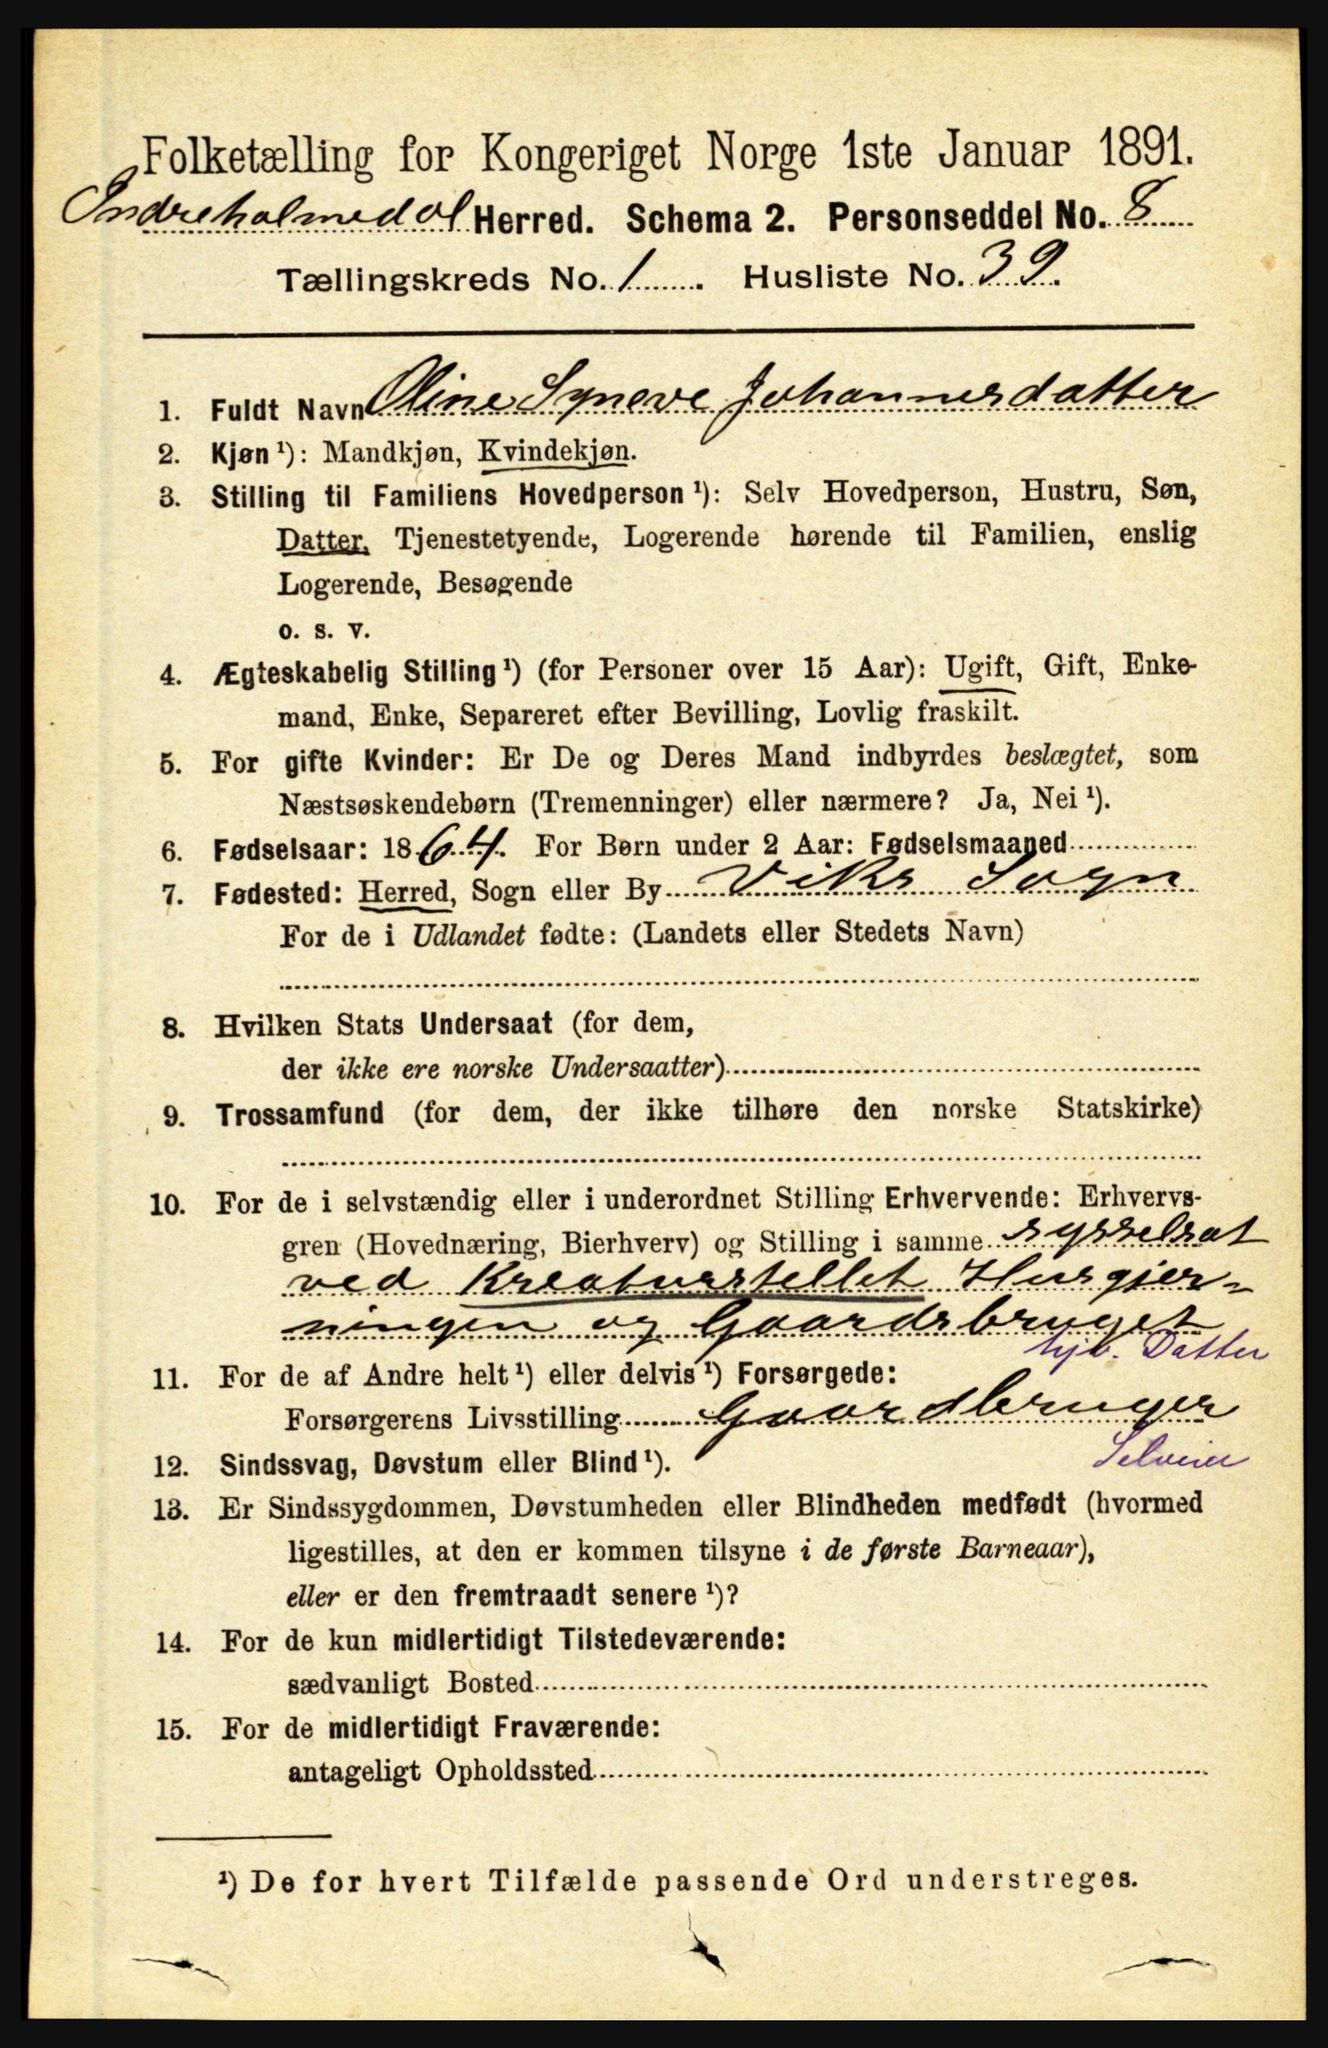 Folketælling for Kongeriget Norge 1ste Januar 1891.
Indreholmedal Herred. Schema 2. Personseddel No. 8
Tællingskreds No. 1. Husliste No. 39.
1. Fuldt Navn Oline Syneve Johannesdatter
2. Kjøn ¹): Mandkjøn, Kvindekjøn.
3. Stilling til Familiens Hovedperson ¹): Selv Hovedperson, Hustru, Søn,
Datter, Tjenestetyende, Logerende hørende til Familien, enslig
Logerende, Besøgende
o. s. v.
4. Ægteskabelig Stilling ¹) (for Personer over 15 Aar): Ugift, Gift, Enke-
mand, Enke, Separeret efter Bevilling, Lovlig fraskilt.
5. For gifte Kvinder: Er De og Deres Mand indbyrdes beslægtet, som
Næstsøskendebørn (Tremenninger) eller nærmere? Ja, Nei ¹).
6. Fødselsaar: 1864. For Børn under 2 Aar: Fødselsmaaned
7. Fødested: Herred, Sogn eller By Viks Sogn
For de i Udlandet fødte: (Landets eller Stedets Navn)
8. Hvilken Stats Undersaat (for dem,
der ikke ere norske Undersaatter)
9. Trossamfund (for dem, der ikke tilhøre den norske Statskirke)
10. For de i selvstændig eller i underordnet Stilling Erhvervende: Erhvervs-
gren (Hovednæring, Bierhverv) og Stilling i samme sysselsat
ved Kreaturstellet Husgjer-
ningen og Gaardsbruget
hjv. Datter
11. For de af Andre helt ¹) eller delvis ¹) Forsørgede:
Forsørgerens Livsstilling Gaardbruger
Selveier
12. Sindssvag, Døvstum eller Blind ¹).
13. Er Sindssygdommen, Døvstumheden eller Blindheden medfødt (hvormed
ligestilles, at den er kommen tilsyne i de første Barneaar),
eller er den fremtraadt senere ¹)?
14. For de kun midlertidigt Tilstedeværende:
sædvanligt Bosted
15. For de midlertidigt Fraværende:
antageligt Opholdssted
¹) De for hvert Tilfælde passende Ord understreges.